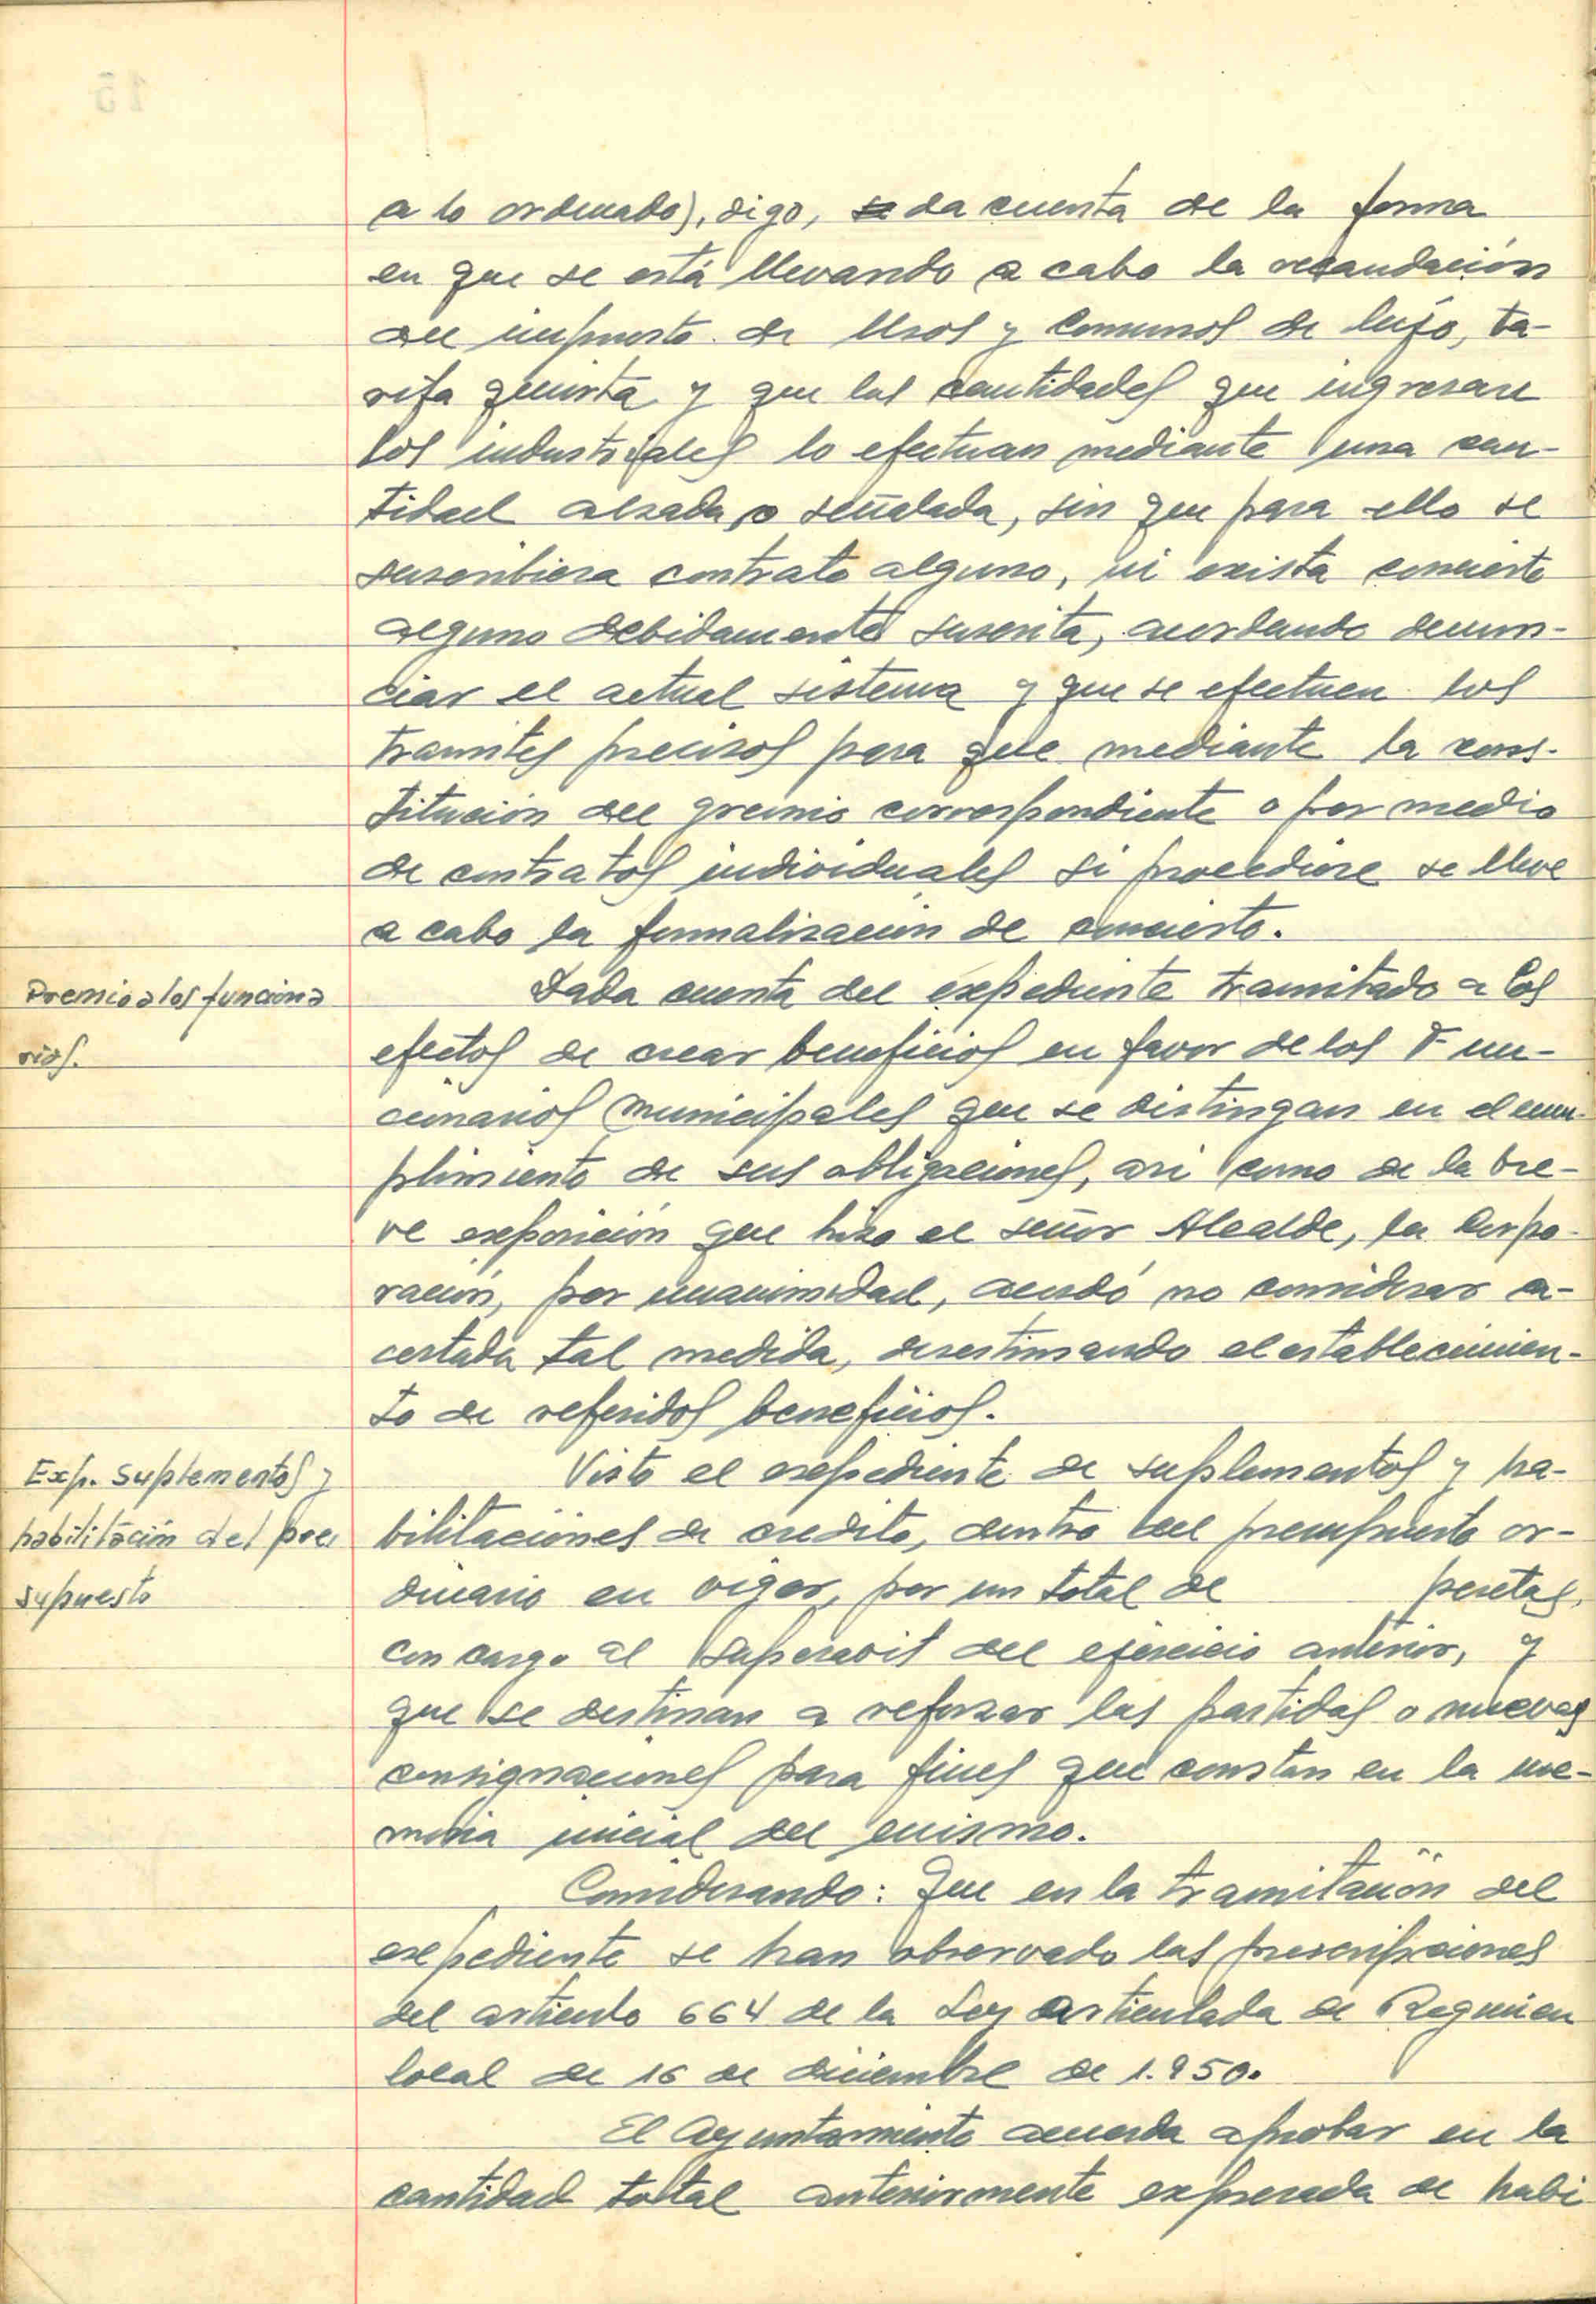 a lo ordenado), digo, se da cuenta de la forma
en que se está llevando a cabo la recaudación
del impuesto de Usos y Consumos de lujo, ta-
rifa quinta y que las cantidades que ingresan
los industriales lo efectuan mediante una can-
tidad alzada o señalada, sin que para ello se
suscribiera contrato alguno, ni exista concierto
alguno debidamente suscrita, acordando denun-
ciar el actual sistema y que se efectuen los
tramites precisos para que mediante la cons-
titución del gremio correspondiente o por medio
de contratos individuales si procediere se lleve
a cabo la formalización de concierto.
Premio a los funciona
rios.
Dada cuenta del expediente tramitado a los
efectos de crear beneficios en favor de los Fun-
cionarios municipales que se distingan en el cum-
plimiento de sus obligaciones, asi como de la bre-
ve exposición que hizo el señor Alcalde, la Corpo-
ración, por unanimidad, acordó no considerar a-
certada tal medida, desestimando el establecimien-
to de referidos beneficios.
Exp. Suplementos y
habilitación del pre
supuesto
Visto el expediente de suplementos y ha-
bilitaciones de credito, dentro del presupuesto or-
dinario en vigor, por un total de pesetas,
con cargo al superavit del ejercicio anterior, y
que se destinan a reforzar las partidas o nuevas
consignaciones para fines que constan en la me-
moria inicial del mismo.
Considerando: Que en la tramitación del
expediente se han observado las prescripciones
del articulo 664 de la Ley articulada de Regimen
local de 16 de diciembre de 1.950.
El Ayuntamiento acuerda aprobar en la
cantidad total anteriormente expresada de habi
15